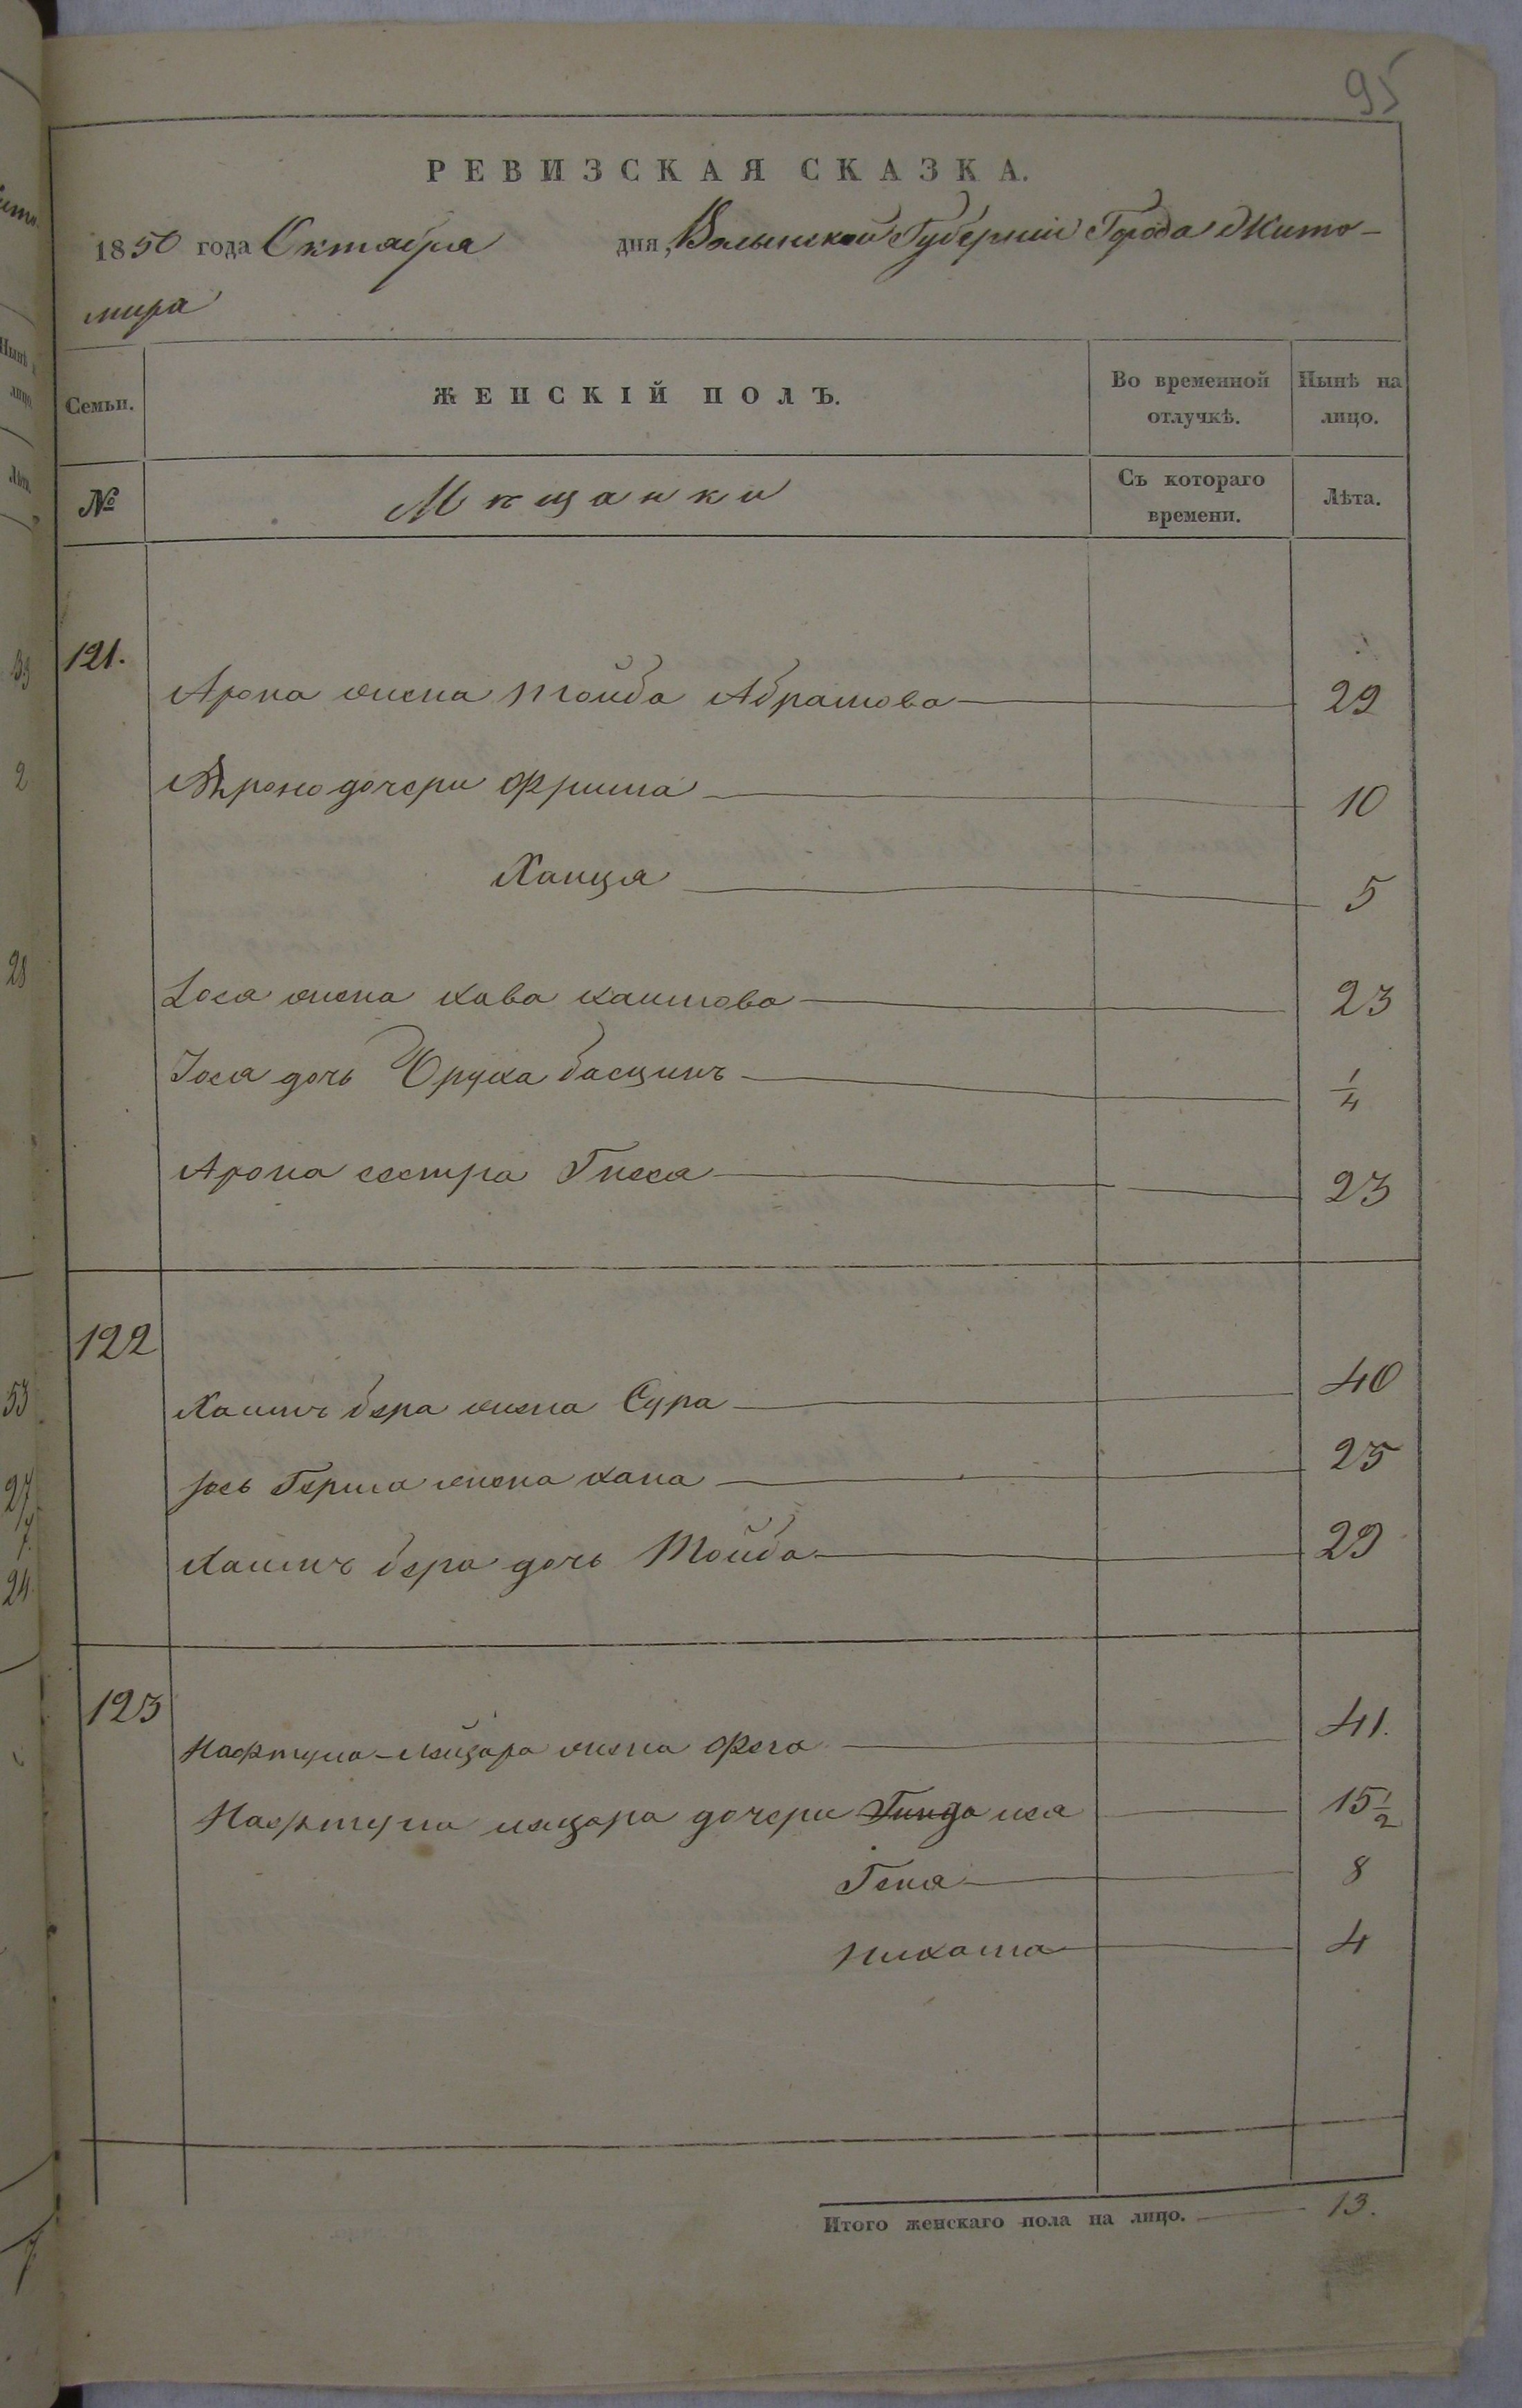 95
РЕВИЗСКАЯ СКАЗКА.
1850 года Октября дня, Волынской Губерніи Города Жито-
мира
Семьи. ЖЕНСКІЙ ПОЛЪ. Во временной отлучкѣ. Нынѣ на лицо.
№ Мѣщанки Съ котораго времени. Лѣта.
121.
Арона жена Тойба Абрамова 29
Арона дочери Фрима 10
Ханця 5
Іося жена Хава Хаимова 23
Іося дочь Фруха басшинъ 1/4
Арона сестра Гнеся 23
122
Хаимъ бера жена Сура 40
Іось Герша жена Хана 25
Хаимъ бера дочь Тойба 29
123
Нафтула-лейзара жена Фега 41.
Нафтула лейзара дочери 15 1/2
Геня 8
4
Итого женскаго пола на лицо. 13.